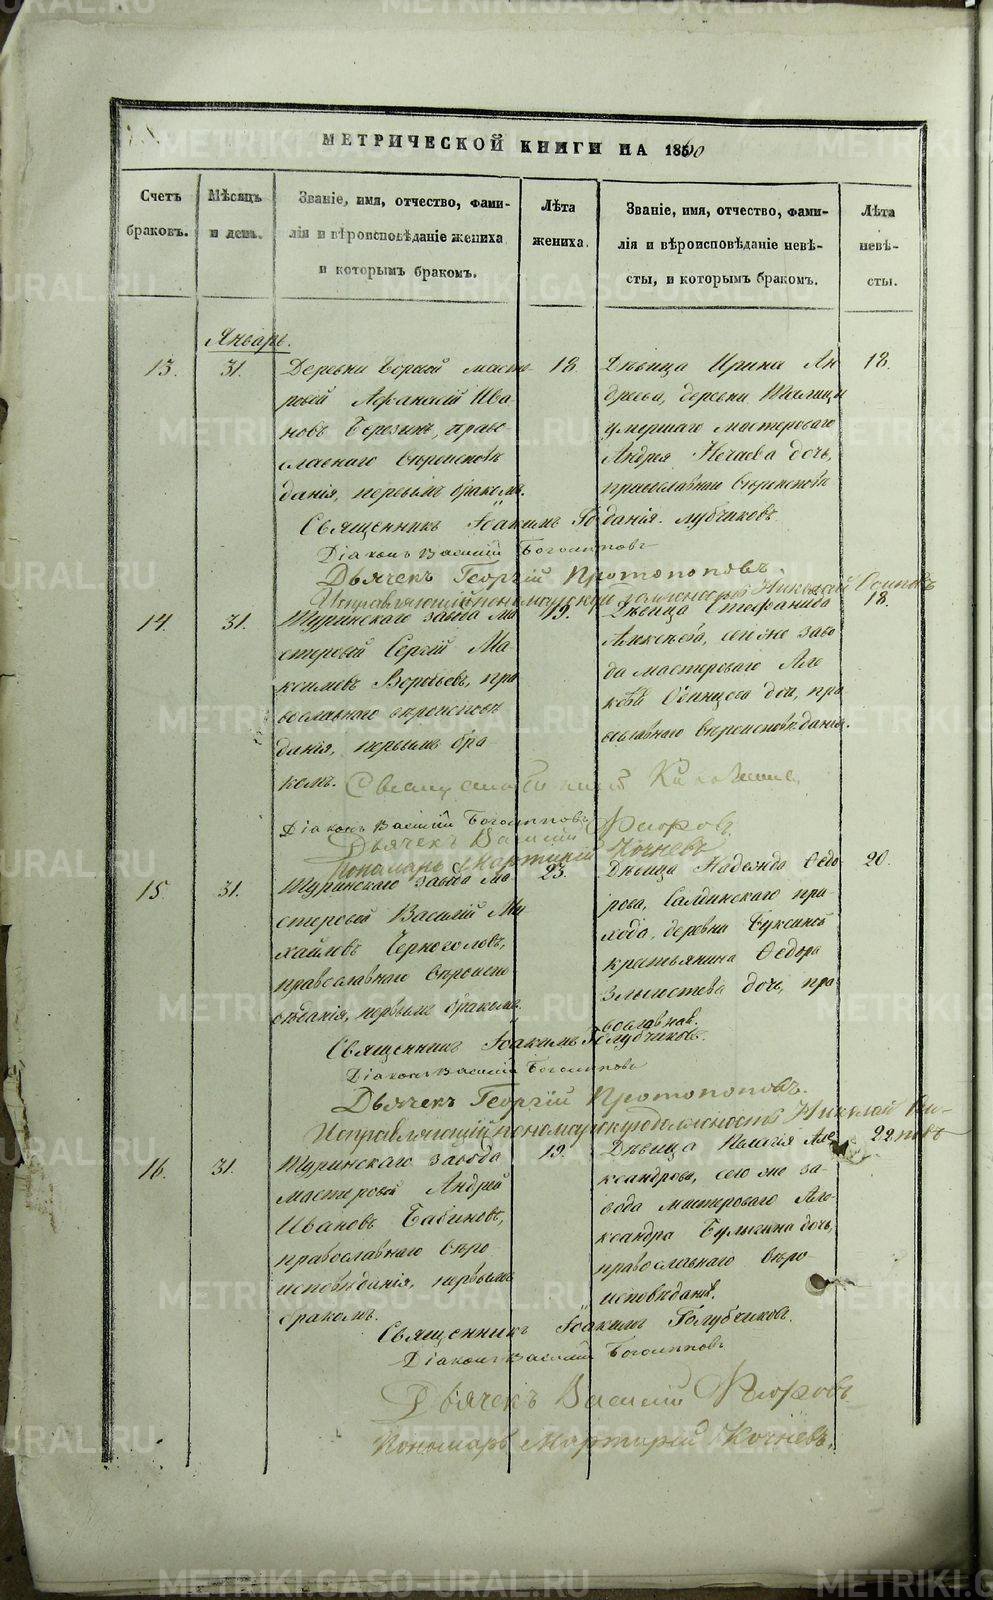 МЕТРИЧЕСКОЙ КНИГИ НА 1860
Счетъ браковъ.
Мѣсяцъ и день.
Званіе, имя, отчество, фами-
лія и вѣроисповѣданіе жениха
и которымъ бракомъ.
Лѣта жениха.
Званіе, имя, отчество, фами-
лія и вѣроисповѣданіе невѣ-
сты, и которымъ бракомъ.
Лѣта невѣ-
сты.
Январь.
13.
31.
Деревни масте-
ровой Афанасій Ива
новъ Березинъ, право
славнаго вѣроисповѣ
данія, первымъ бракомъ.
18
Дѣвица Ирина Ан
дреева, деревни
умершаго мастероваго
Андрея Нечаева дочь,
православнаго вѣроисповѣ
данія.
18.
Священникъ Іоакимъ Голубчиковъ
Діаконъ Василій Боголиповъ
Дьячекъ Георгій Протопоповъ.
Исправляющій пономарскую должность Николай Осиповъ
14.
31.
Туринскаго завода ма
стеровой Сергій Ма
ксимовъ Воробьевъ, пра
вославнаго вѣроисповѣ
данія, первымъ бра-
комъ.
19.
Дѣвица Стефанида
Алексѣева, сего же заво
да мастероваго Але
ксѣя Одинцова доч, пра
вославнаго вѣроисповѣданія.
18.
Діаконъ Василій Боголиповъ
Дьячекъ Василій Флоровъ.
Пономарь Мартирій Кочневъ
15.
31.
Туринскаго завода ма
стеровой Василій Ми
хайловъ Черноголовъ,
православнаго вѣроиспо
вѣданія, первымъ бракомъ.
23.
Дѣвица Надежда Ѳедо
рова, Салдинскаго при-
хода, деревни Буксиной
крестьянина Ѳедора
дочь, пра
вославная.
20.
Священникъ Іоакимъ Голубчиковъ.
Діаконъ Василій Боголиповъ
Дьячекъ Георгій Протопоповъ.
Исправляющій пономарскую должность Николай Оси-
повъ
16.
31.
Туринскаго завода
мастеровой Андрей
Ивановъ Бабиновъ,
православнаго вѣро
исповѣданія, первымъ
бракомъ.
19.
Дѣвица Пелагія Але
ксандрова, сего же за
вода мастероваго Але-
ксандра Булыгина дочь,
православнаго вѣро
исповѣданія.
22
Священникъ Іоакимъ Голубчиковъ.
Діаконъ Василій Боголиповъ
Дьячекъ Василій Флоровъ
Пономарь Мартирій Кочневъ.
METRIKI.GASO-URAL.RU